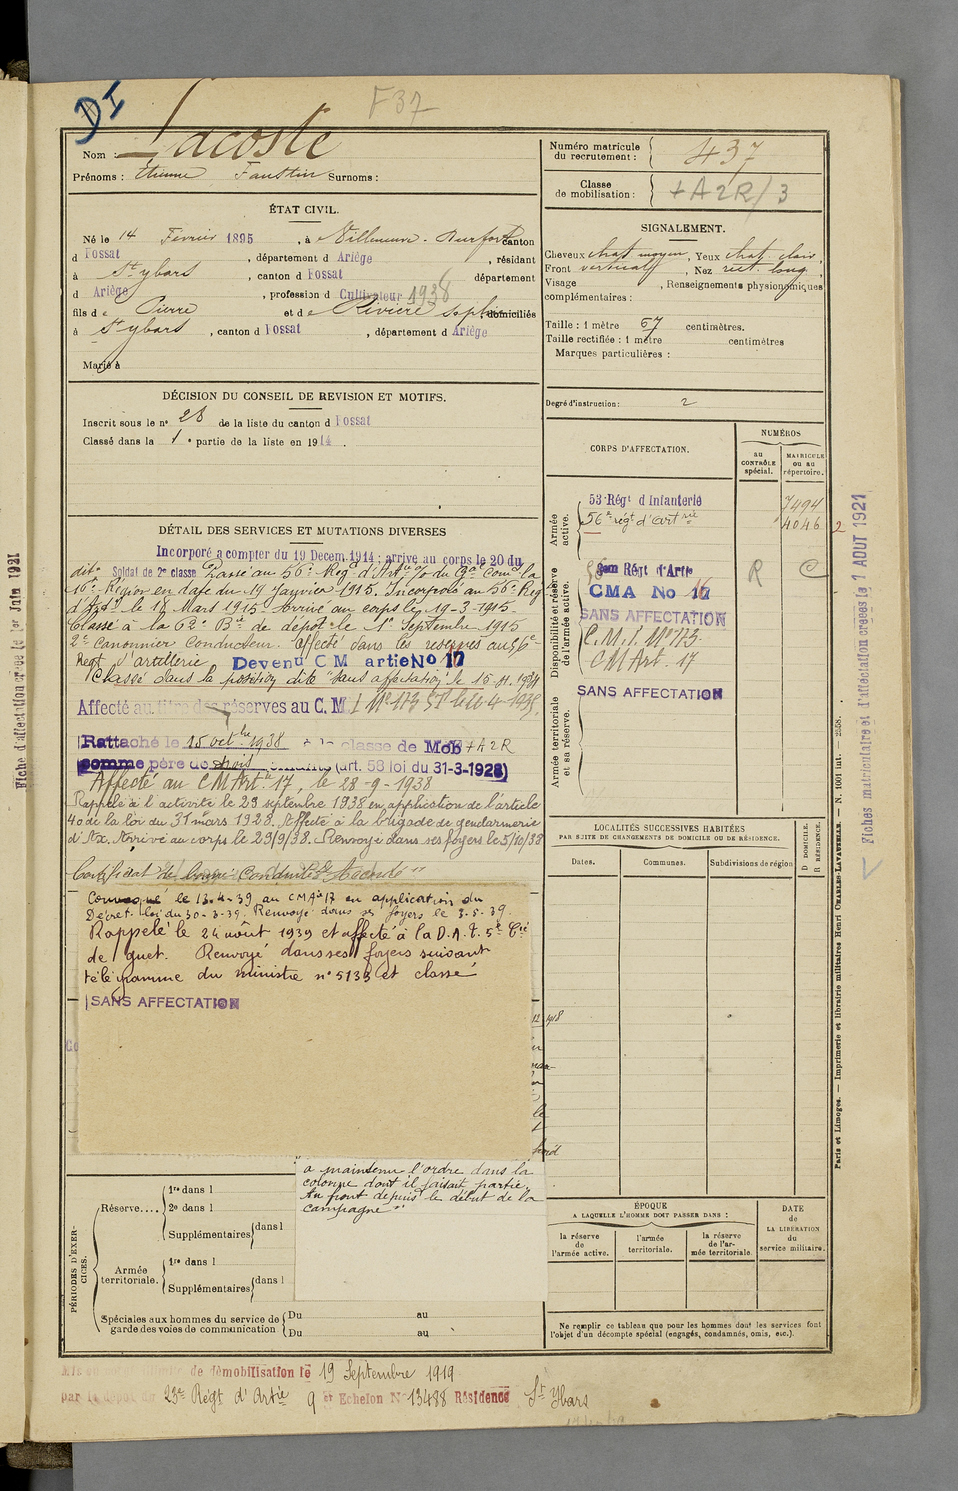 DI
F37
Nom : Lacoste
Prénoms : Etienne Faustin Surnoms :
ÉTAT CIVIL.
Né le 14 Février 1895, à Villeneuve-Durfort canton
d Fossat, département d Ariège, résidant
à St ybars, canton d Fossat département
d Ariège, profession d Cultivateur 1938
fils de Pierre et de Rivière Sophie, domiciliés
à St ybars, canton d Fossat, département d Ariège
Marié à
DÉCISION DU CONSEIL DE REVISION ET MOTIFS.
Inscrit sous le n° 28 de la liste du canton d Fossat
Classé dans la 1e partie de la liste en 1914.
DÉTAIL DES SERVICES ET MUTATIONS DIVERSES
Incorporé a compter du 19 Decem. 1914; arrivé au corps le 20 du
dit Soldat de 2e classe Passé au 56e Rég d'Art
16e Région en date du 19 Janvier 1915. Incorporé au 56e Rég
d'Art le 18 Mars 1915. Arrivé au corps le 19-3-1915.
Classé à la 62e Bie de dépôt le 1er Septembre 1915
2e canonnier Conducteur. Affecté dans les réserves au 56e
Regt d'artillerie Devenu CM artie No 17
Classé dans la position dite "sans affectation" le 15-11-1934
Affecté au titre des réserves au C.M.I. No 173
Rattaché le 15 octbre 1938 à la classe de Mob + A2R
comme père de trois enfants (art. 58 loi du 31-3-1928)
Affecté au CM Art. 17, le 28-9-1938
Rappelé à l'activité le 29 septembre 1938 en application de l'article
40 de la loi du 31 mars 1928. Affecté à la brigade de gendarmerie
d'Ax. Arrivé au corps le 29/9/38. Renvoyé dans ses foyers le 5/10/38
Certificat de bonne Conduite "Accordé"
Convoqué le 13-4-39 au CMA 17 en application du
Décret-loi du 30-3-39. Renvoyé dans ses foyers le 3.5.39.
Rappelé le 24 août 1939 et affecté à la D.A.T. 5e Cie
de guet. Renvoyé dans ses foyers suivant
télégramme du ministre n° 5133 et classé
SANS AFFECTATION
a maintenu l'ordre dans la
colonne dont il faisait partie.
Au front depuis le début de la
campagne"
PÉRIODES D'EXERCICES.
Réserve....
1re dans l
2e dans l
Supplémentaires dans l
Armée territoriale.
1re dans l
Supplémentaires dans l
Spéciales aux hommes du service de garde des voies de communication
Du au
Du au
Numéro matricule du recrutement : 437
Classe de mobilisation : + A2R/3
SIGNALEMENT.
Cheveux chat moyen, Yeux chat. clair
Front vertical, Nez rect. long,
Visage , Renseignements physionomiques
complémentaires :
Taille : 1 mètre 67 centimètres.
Taille rectifiée : 1 mètre centimètres
Marques particulières :
Degré d'instruction : 2
CORPS D'AFFECTATION.
NUMÉROS
au CONTRÔLE spécial.
MATRICULE ou au répertoire.
Armée active.
53 Régt d'Infanterie 7494
56e régt d'artrie 4046
2
Disponibilité et réserve de l'armée active.
Régt d'Artie
R
C
CMA No 17
SANS AFFECTATION
C.M.I. No 173
CM Art. 17
Armée territoriale et sa réserve.
SANS AFFECTATION
LOCALITÉS SUCCESSIVES HABITÉES
PAR SUITE DE CHANGEMENTS DE DOMICILE OU DE RÉSIDENCE.
Dates.
Communes.
Subdivisions de région
D DOMICILE.
R RÉSIDENCE.
ÉPOQUE
A LAQUELLE L'HOMME DOIT PASSER DANS :
la réserve de l'armée active.
l'armée territoriale.
la réserve de l'armée territoriale.
DATE de LA LIBÉRATION du service militaire.
Ne remplir ce tableau que pour les hommes dont les services font
l'objet d'un décompte spécial (engagés, condamnés, omis, etc.).
de démobilisation le 19 Septembre 1919
par le dépôt du 23e Régt d'Artie 9 er Echelon No 13488 Résidence St Ybars
Fiche d'affectation créée le 1er Juin 1921
Fiches matriculaire et d'affectation créées le 1 AOUT 1921
Paris et Limoges. — Imprimerie et librairie militaires Henri CHARLES-LAVAUZELLE. — N. 1001 int. — 2558.